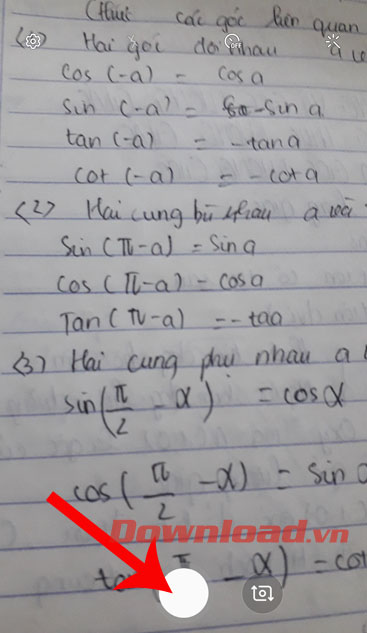 (Thuộc các góc liên quan
(1) Hai góc đối nhau
cos (-a) = cosa
sin (-a) = -sina
tan (-a) = -tana
cot (-a) = -cota
(2) Hai cung bù nhau a và
Sin (π-a) = Sina
cos (π-a) = -cosa
Tan (π-a) = -taa
(3) Hai cung phụ nhau a
sin(π/2 - α) = cosα
cos(π/2 - α) = sin
Download.vn
tan - α) = cot